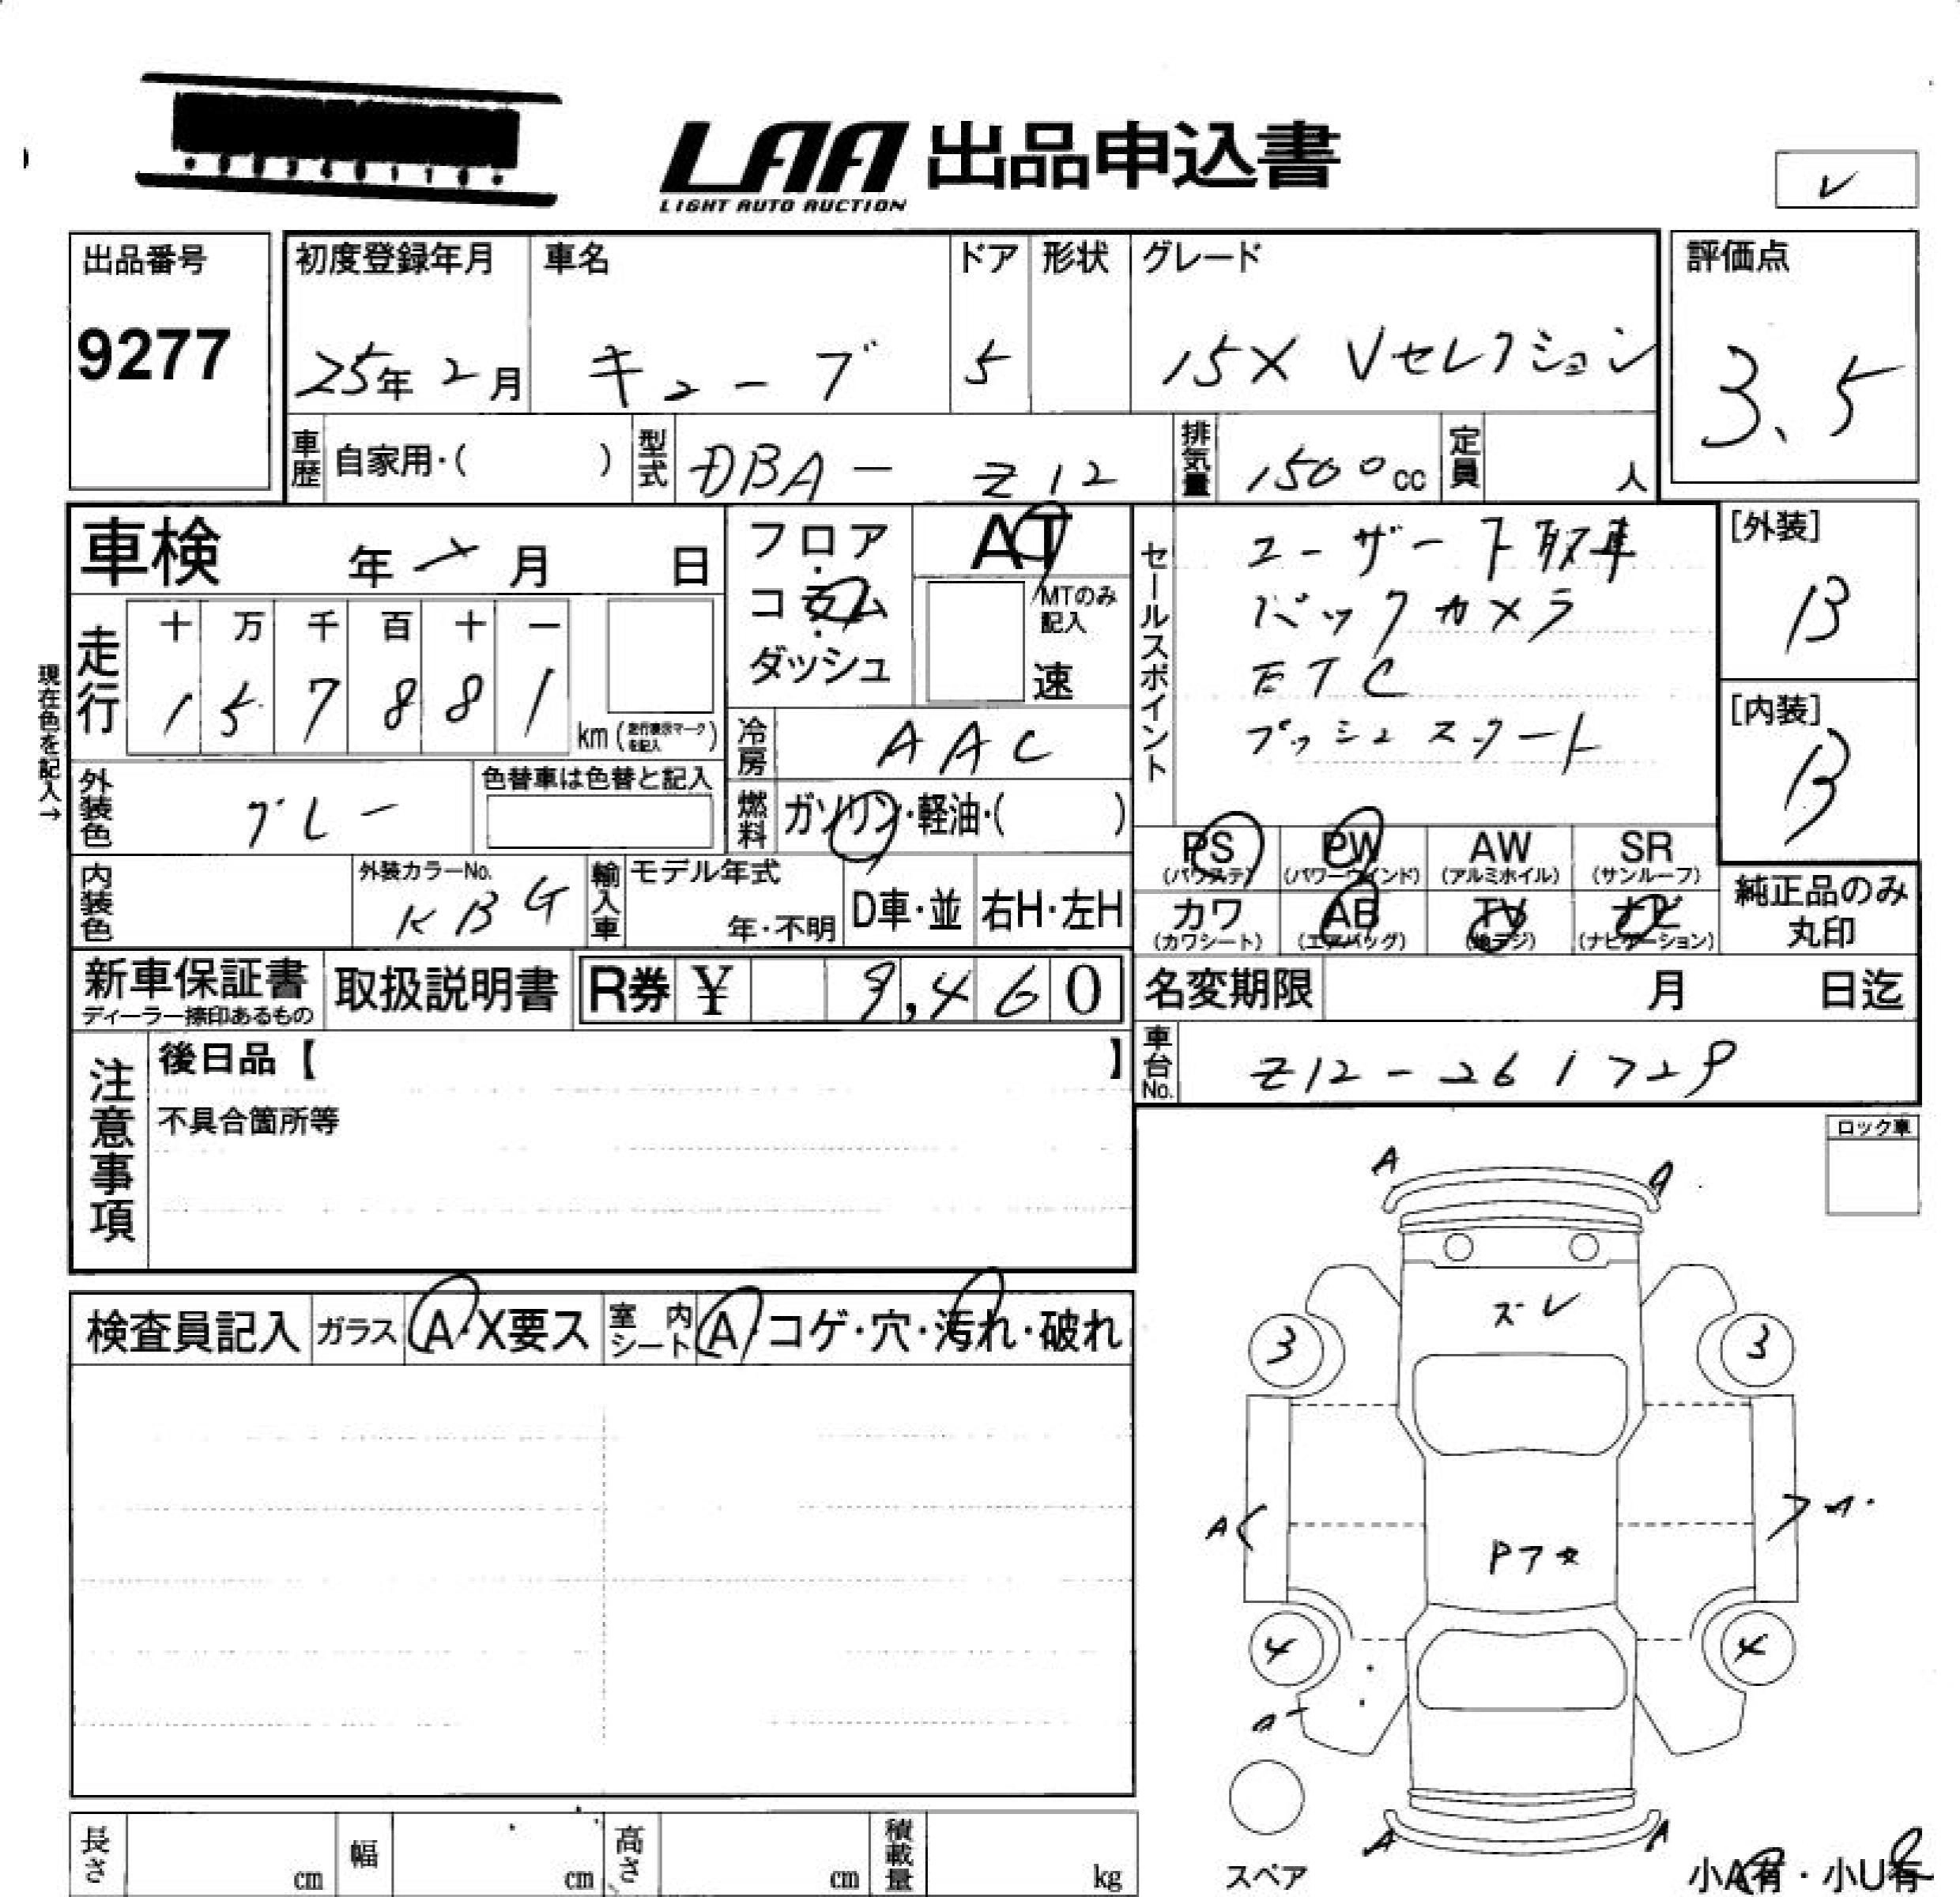 LAA 出品申込書
LIGHT AUTO AUCTION
レ
出品番号
9277
初度登録年月
25年 2月
車名
キューブ
ドア
5
形状
グレード
15X Vセレクション
評価点
3.5
車歴
自家用・( )
型式
DBA- Z12
排気量
1500cc
定員
人
車検 年 月 日
フロア・コラム・ダッシュ
AT
MTのみ記入
速
セールスポイント
ユーザー下取車
バックカメラ
ETC
プッシュスタート
[外装]
B
[内装]
B
現在色を記入→
走行
十 万 千 百 十 一
1 5 7 8 8 1
km(走行表示マークを記入)
冷房
AAC
外装色
グレー
色替車は色替と記入
燃料
ガソリン・軽油・( )
PS
(パワステ)
PW
(パワーウインド)
AW
(アルミホイル)
SR
(サンルーフ)
カワ
(カワシート)
AB
(エアバッグ)
TV
(地デジ)
ナビ
(ナビゲーション)
純正品のみ
丸印
内装色
外装カラーNo.
KBG
輸入車
モデル年式
年・不明
D車・並
右H・左H
新車保証書
ディーラー捺印あるもの
取扱説明書
R券 ¥ 9,460
名変期限 月 日迄
車台No.
Z12-261729
注意事項
後日品【 】
不具合箇所等
ロック車
検査員記入
ガラス
A・X要ス
室内シート
A・コゲ・穴・汚れ・破れ
A A
ズレ
3 3
A
Pフタ
4 4
A A
スペア
小A有・小U有
長さ cm
幅 cm
高さ cm
積載量 kg